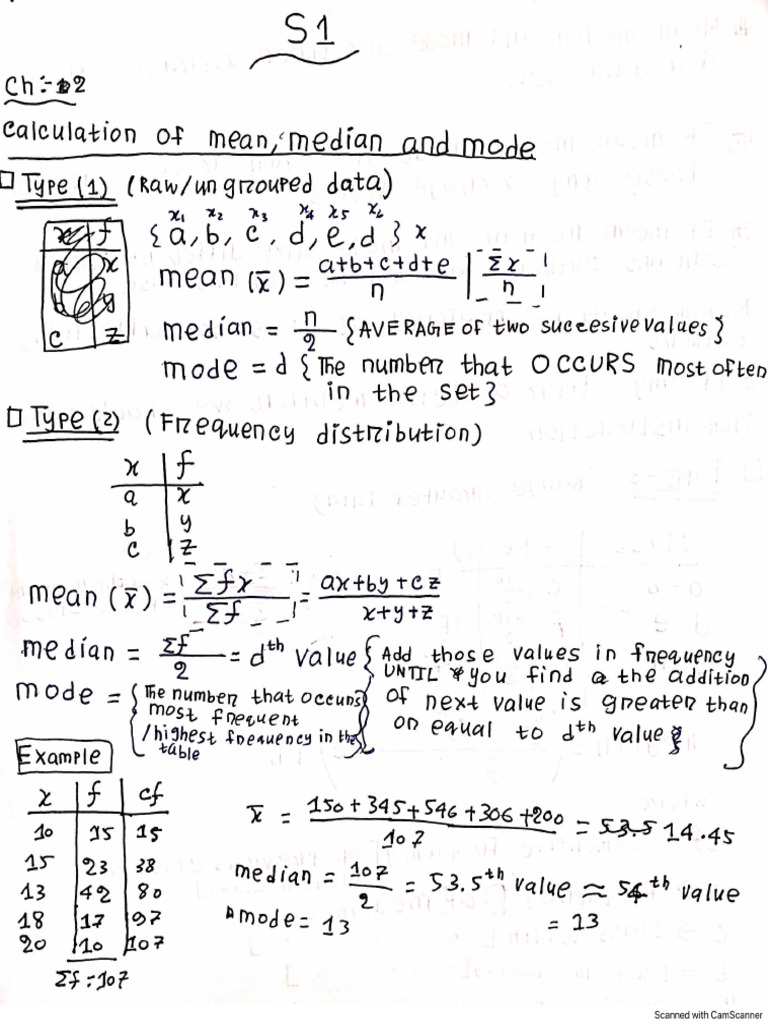 S1
Ch:- 2
Calculation of mean, median and mode
Type (1) (Raw/ungrouped data)
x1 x2 x3 x4 x5 x6
{a, b, c, d, e, d} x
x f
a x
b y
c z
mean (x̄) = a+b+c+d+e / n | Σx / n
median = n/2 {AVERAGE of two succesive values}
mode = d {The number that OCCURS most often
in the set}
Type (2) (Frequency distribution)
x f
a x
b y
c z
mean (x̄) = Σfx / Σf = ax+by+cz / x+y+z
median = Σf / 2 = dth value {Add those values in frequency
UNTIL you find the addition
of next value is greater than
or equal to dth value}
mode = {The number that occurs
most frequent
/highest frequency in the
table
Example
x f cf
10 15 15
15 23 38
13 42 80
18 17 97
20 10 107
Σf = 107
x̄ = 150 + 345 + 546 + 306 + 200 / 107 = 53.5 14.45
median = 107 / 2 = 53.5th value ≈ 54th value
= 13
mode = 13
Scanned with CamScanner